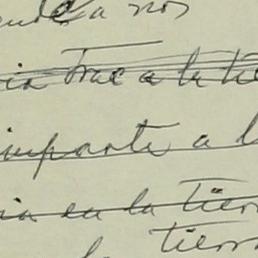 a nos
ia trae a la tie
imparte a l
ia en la tierr
la tierra